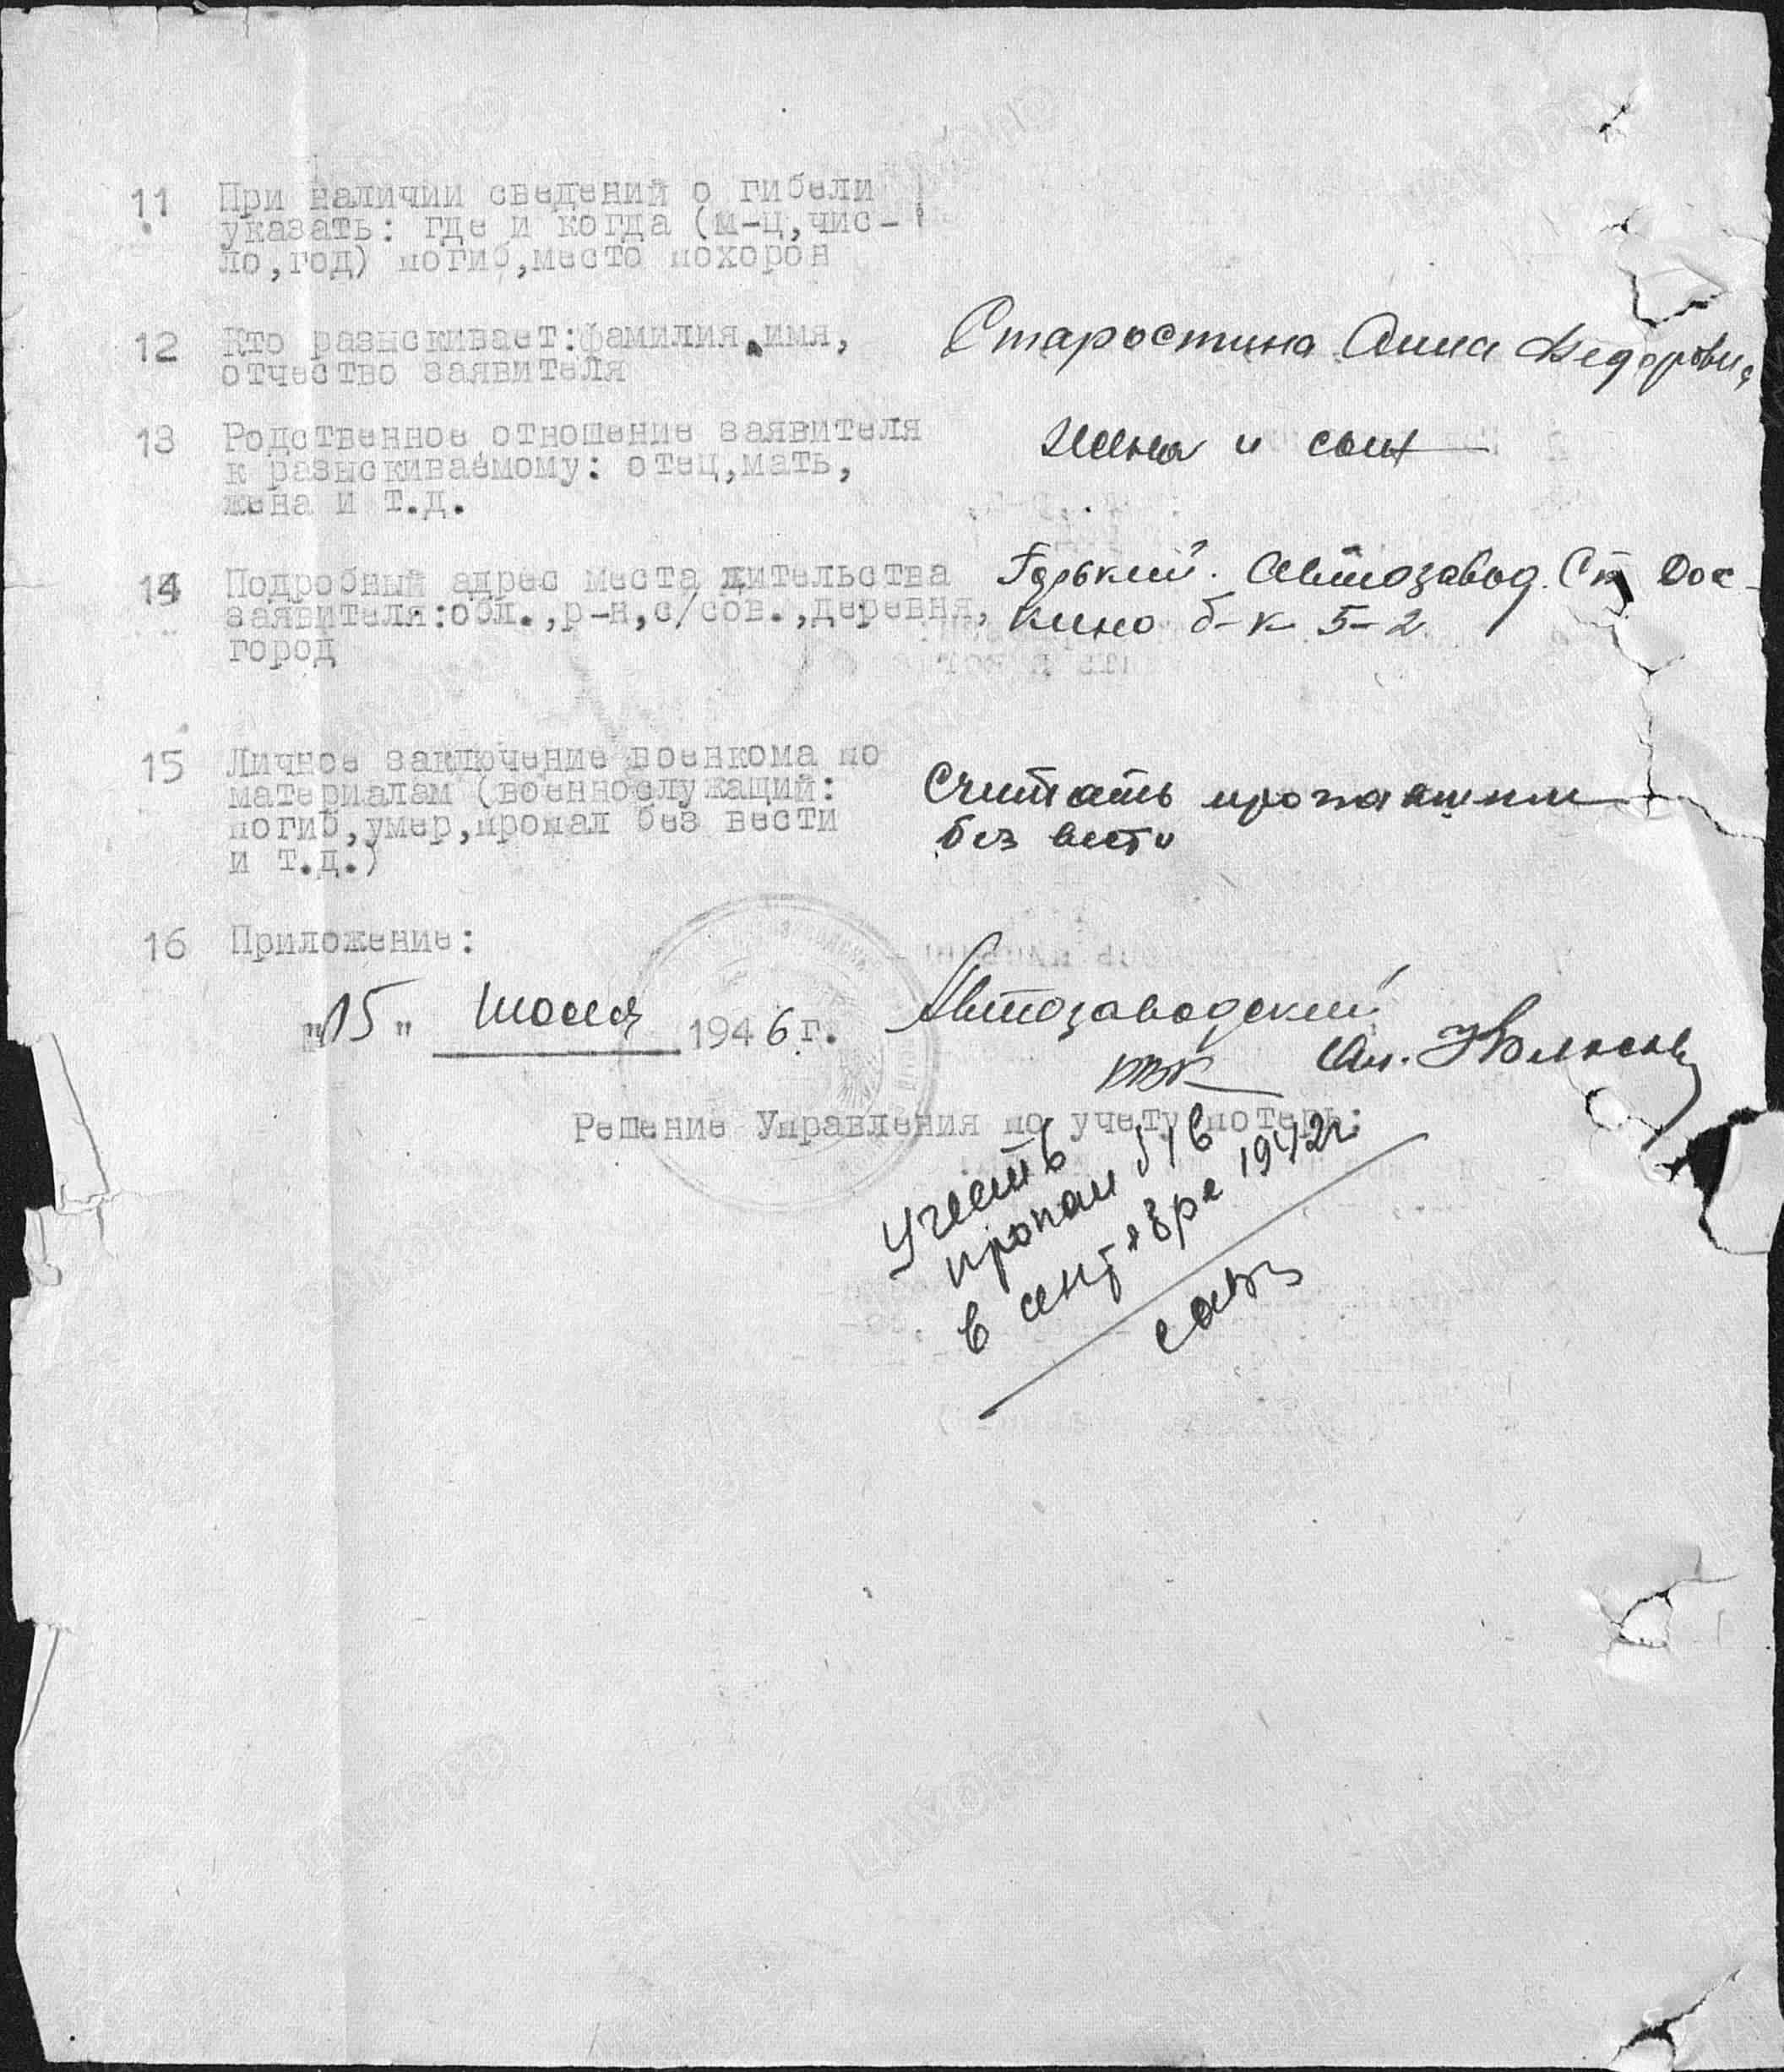 11 При наличии сведений о гибели
указать: где и когда (м-ц,чис-
ло,год) погиб,место похорон
12 Кто разыскивает:фамилия,имя,
отчество заявителя
Старостина Анна Федоровна
13 Родственное отношение заявителя
к разыскиваемому: отец,мать,
жена и т.д.
Жена и сын
14 Подробный адрес места жительства
заявителя:обл.,р-н,с/сов.,деревня,
город
Горький. Автозавод. Ст Дос-
кино б-к 5-2
15 Личное заключение военкома по
материалам (военнослужащий:
погиб,умер,пропал без вести
и т.д.)
Считать пропавшим
без вести
16 Приложение:
"15" июля 1946 г.
Автозаводский
РВК
Решение Управления по учету потерь:
Учесть
пропал б/в
в сентябре 1942г
ЦАМО РФ